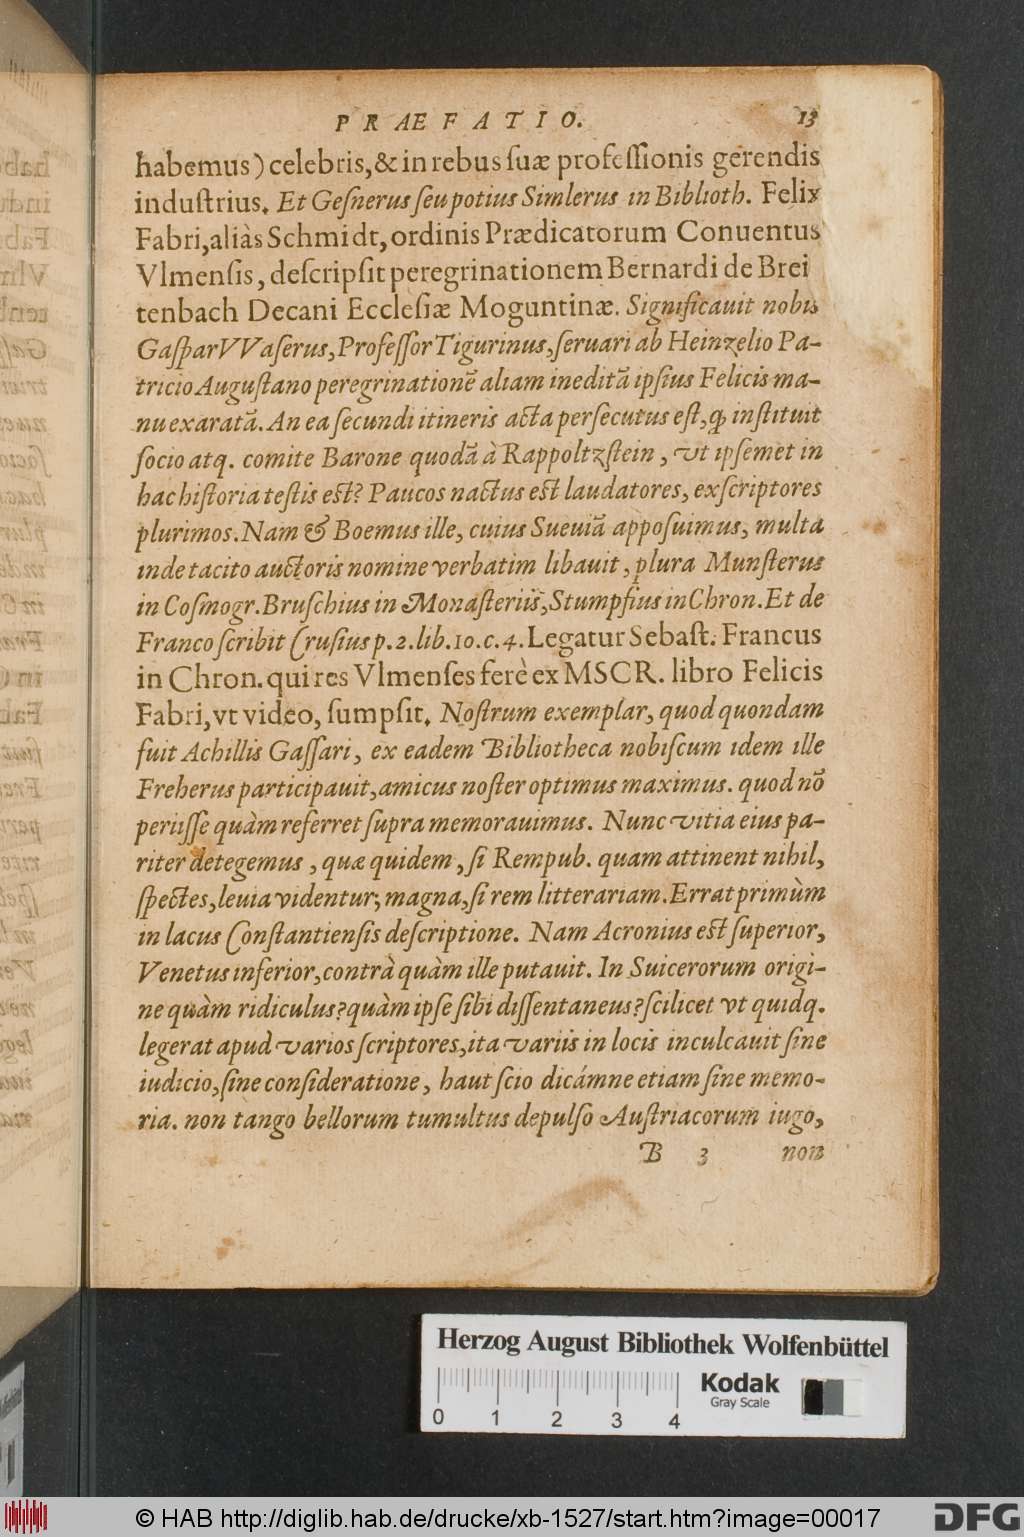 PRÆFATIO. 13
habemus) celebris, & in rebus suæ professionis gerendis
industrius. Et Gesnerus seu potius Simlerus in Biblioth. Felix
Fabri, aliàs Schmidt, ordinis Prædicatorum Conuentus
Vlmensis, descripsit peregrinationem Bernardi de Brei
tenbach Decani Ecclesiæ Moguntinæ. Significauit nobis
Gaspar VVaserus, Professor Tigurinus, seruari ab Heinzelio Pa-
tricio Augustano peregrinationē aliam ineditā ipsius Felicis ma-
nu exaratā. An ea secundi itineris acta persecutus est, qꝫ instituit
socio atq. comite Barone quodā à Rappoltzstein, vt ipsemet in
hac historia testis est? Paucos nactus est laudatores, exscriptores
plurimos. Nam & Boemus ille, cuius Sueuiā apposuimus, multa
inde tacito auctoris nomine verbatim libauit, plura Munsterus
in Cosmogr. Bruschius in Monasteriis, Stumpfius in Chron. Et de
Franco scribit Crusius p. 2. lib. 10. c. 4. Legatur Sebast. Francus
in Chron. qui res Vlmenses ferè ex MSCR. libro Felicis
Fabri, vt video, sumpsit. Nostrum exemplar, quod quondam
fuit Achillis Gassari, ex eadem Bibliotheca nobiscum idem ille
Freherus participauit, amicus noster optimus maximus. quod nō
periisse quàm referret supra memorauimus. Nunc vitia eius pa-
riter detegemus, quæ quidem, si Rempub. quam attinent nihil,
spectes, leuia videntur; magna, si rem litterariam. Errat primùm
in lacus Constantiensis descriptione. Nam Acronius est superior,
Venetus inferior, contrà quàm ille putauit. In Suicerorum origi-
ne quàm ridiculus? quàm ipse sibi dissentaneus? scilicet vt quidq.
legerat apud varios scriptores, ita variis in locis inculcauit sine
iudicio, sine consideratione, haut scio dicámne etiam sine memo-
ria. non tango bellorum tumultus depulso Austriacorum iugo,
B 3 non
Herzog August Bibliothek Wolfenbüttel
Kodak
Gray Scale
0 1 2 3 4
© HAB http://diglib.hab.de/drucke/xb-1527/start.htm?image=00017
DFG